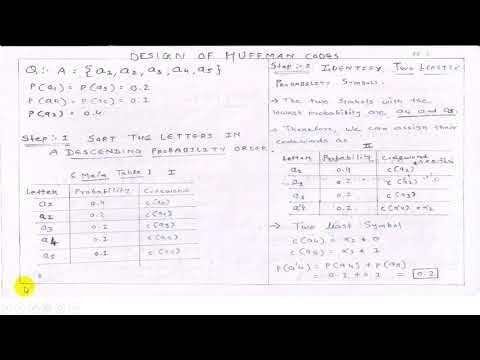 DESIGN OF HUFFMAN CODES
Q:- A = {a1, a2, a3, a4, a5}
P(a1) = P(a3) = 0.2
P(a4) = P(a5) = 0.1
P(a2) = 0.4
Step:- 1 SORT THE LETTERS IN
A DESCENDING PROBABILITY ORDER.
[Main Table] I
Letter Probability Codeword
a2 0.4 c(a2)
a1 0.2 c(a1)
a3 0.2 c(a3)
a4 0.1 c(a4)
a5 0.1 c(a5)
Step:- 2 IDENTIFY TWO LEAST
PROBABILITY SYMBOLS.
→ The two symbols with the
lowest probability are a4 and a5.
→ Therefore, we can assign their
codewords as II
Letter Probability Codeword
a2 0.4 c(a2)
a1 0.2 c(a1)
a3 0.2 c(a3)
a'4 0.2 c(a'4) = α1
→ Two least Symbol
c(a4) = α1 * 0
c(a5) = α1 * 1
P(a'4) = P(a4) + P(a5)
= 0.1 + 0.1 = 0.2